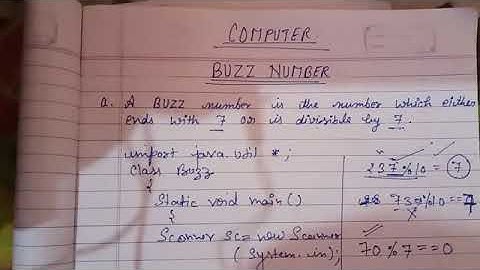 COMPUTER
BUZZ NUMBER
Q. A BUZZ number is the number which either
ends with 7 or is divisible by 7.
import java.util *;
Class Buzz
{
Static void main()
{
Scanner sc = new Scanner
(System.in);
237%10 = 7
73%10 == 7
70%7 == 0